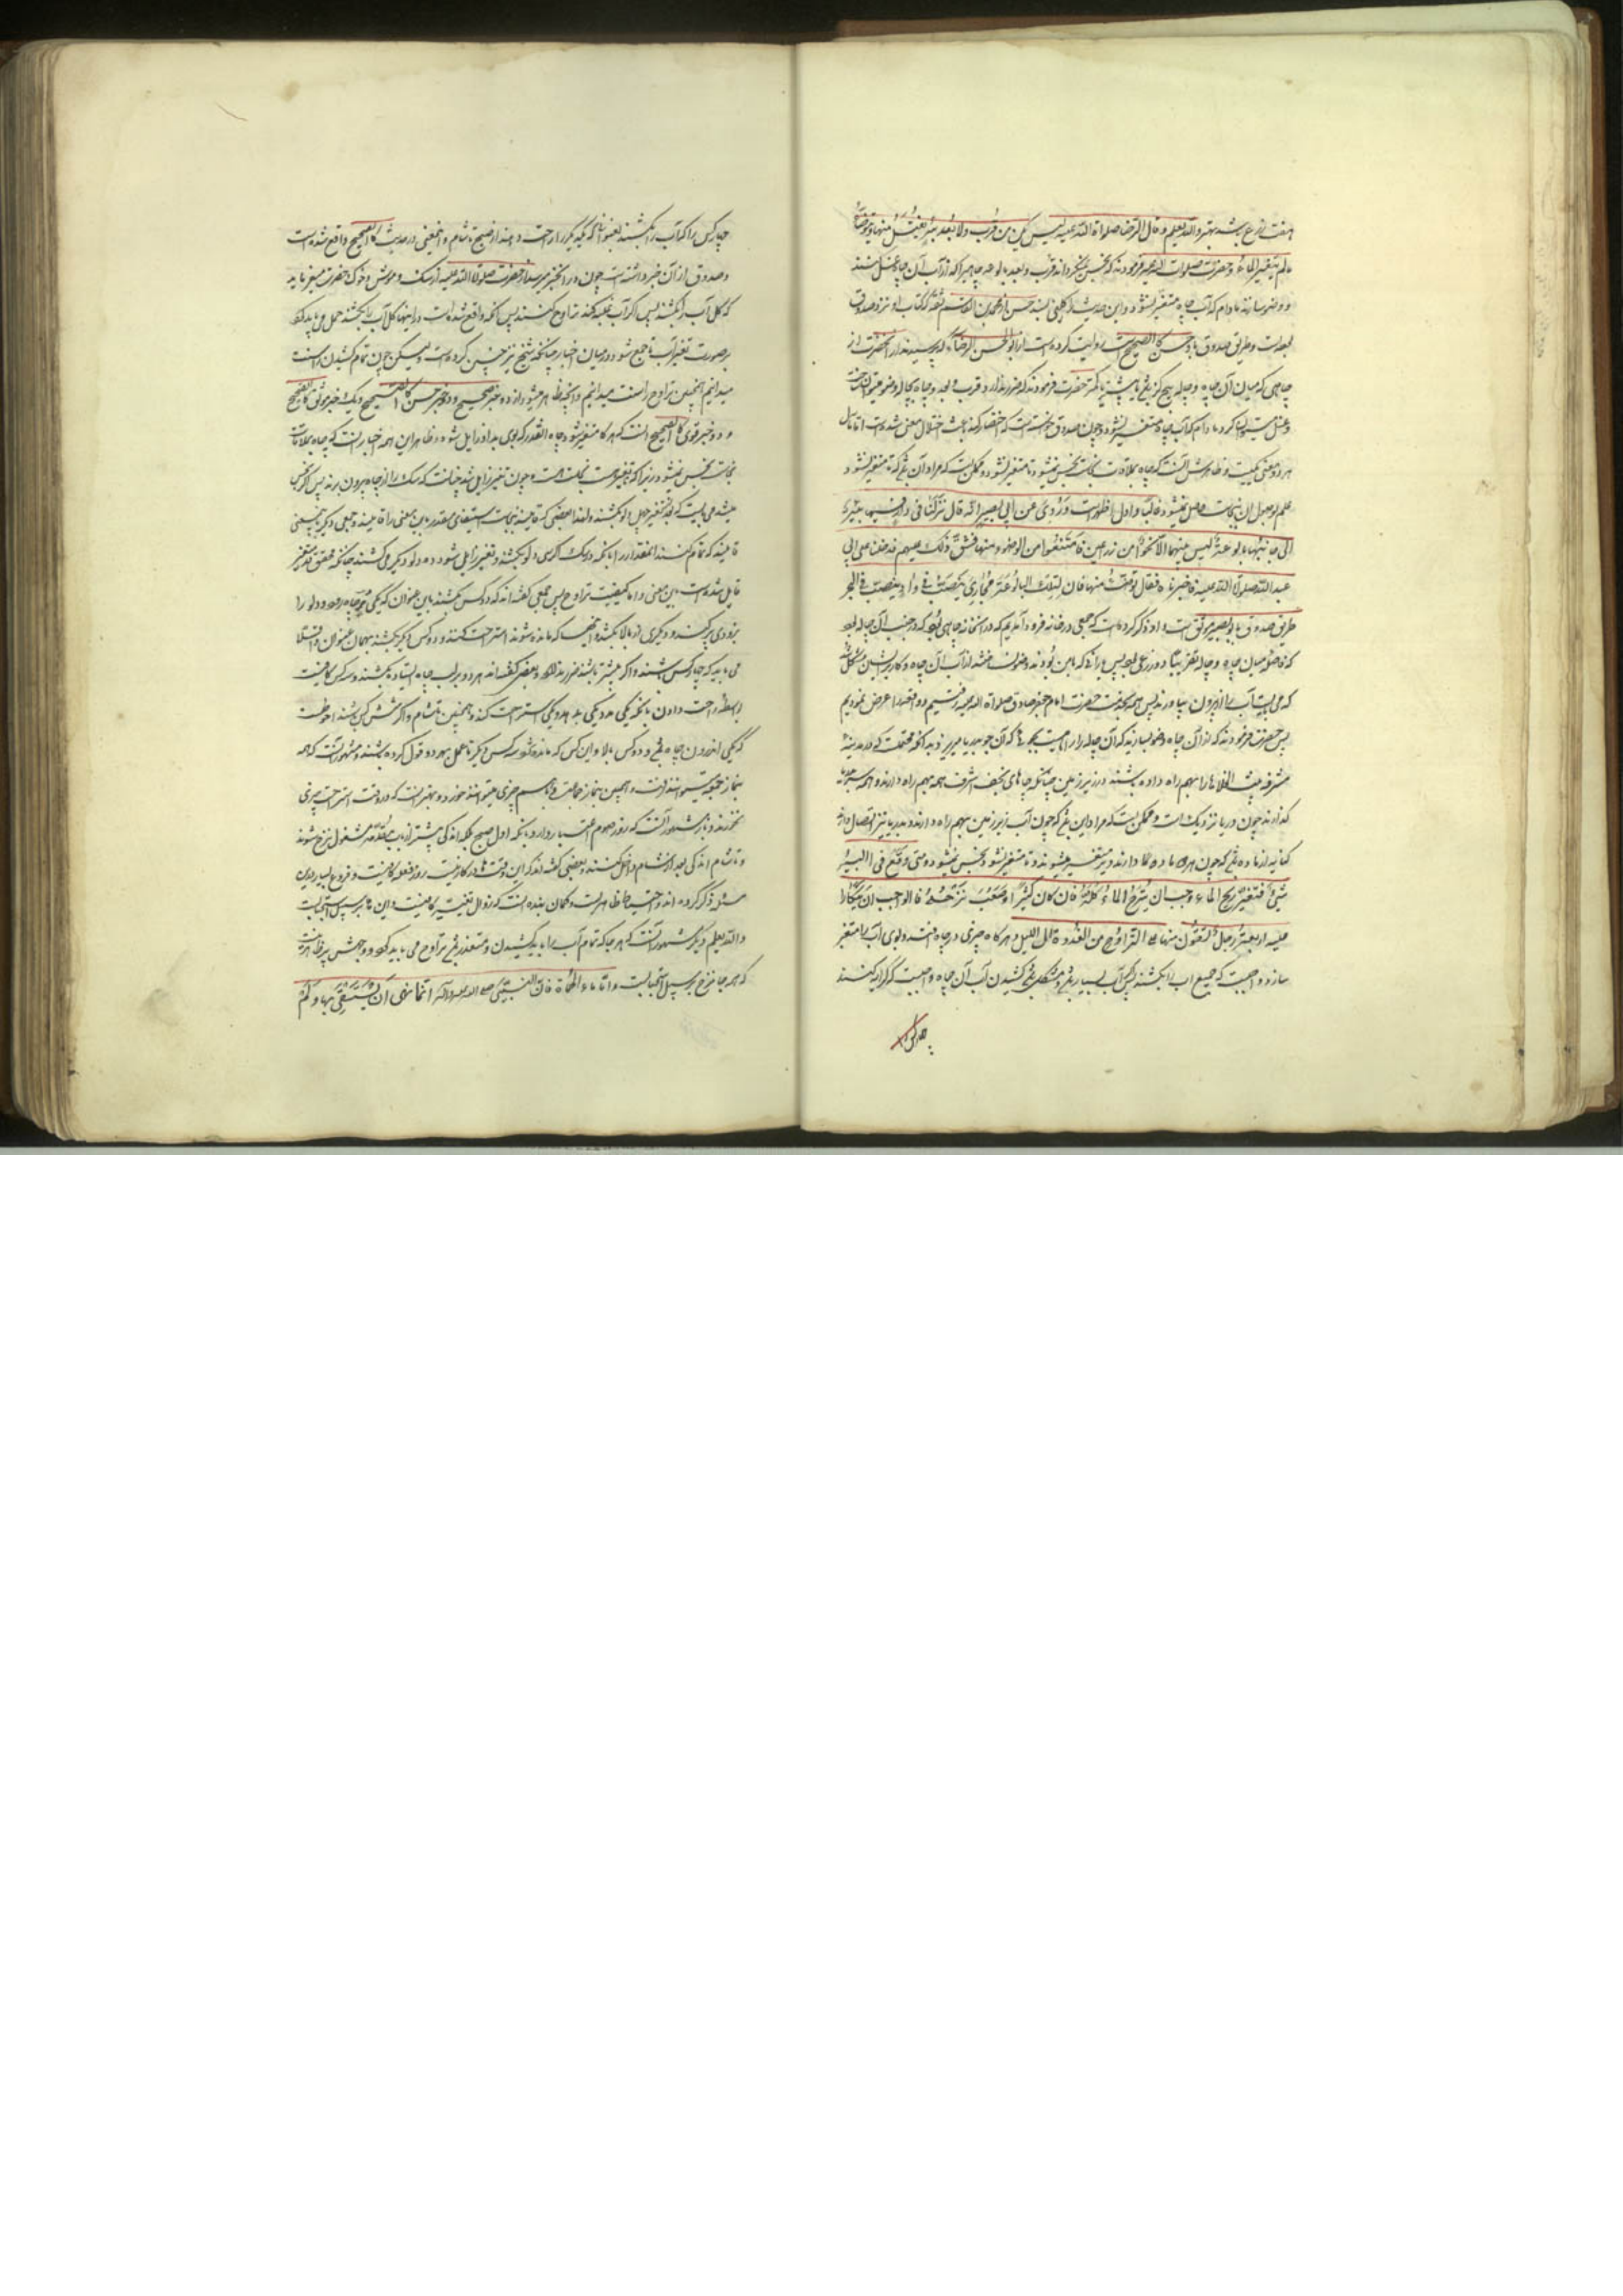 هفت ذرع باشد بهتر و الله یعلم و قال الرضا صلوات الله علیه لیس یکره من قرب و لا بعد بئر یغتسل منها و یتوضأ
ما لم یتغیر الماء و حضرت صلوات الله علیه فرمودند که نجس نمیگرداند قرب و بعد بالوعه چاهیرا که از آب آن چاه غسل کنند
و وضو سازند مادام که آب چاه متغیر نشود و این حدیث را کلینی بسند حسن از محمد بن القاسم ثقه که کتاب او نزد صدوق
بوده است و طریق صدوق باو حسن کالصحیح است روایت کرده است از ابو الحسن الرضا که پرسیدند از آنحضرت از
چاهی که میان آن چاه و چاله پنج گز باشد یا کمتر حضرت فرمودند که ضرر ندارد قرب و بعد و چاه بچاله وضو میتوان ساخت
و غسل میتوان کرد مادام که آب چاه متغیر نشود و چون صدوق خواسته است که اختصار کند باعث اختلال معنی شده است اما مآل
هر دو معنی یکیست و ظاهرش آنست که چاه بملاقات نجاست نجس نمیشود تا متغیر نشود و ممکن است که مراد آن باشد که تا متغیر نشود
علم بوصول آن نجاست حاصل نمیشود غالبا و اول اظهر است و روی عن ابی بصیر انه قال نزلنا فی دار فیها بئر
الی جانبها بالوعة لیس بینهما الا نحوا من ذراعین فامتنعوا من الوضوء منها فشق ذلک علیهم فدخلنا علی ابی
عبد الله صلوات الله علیه فاخبرناه فقال توضئوا منها فان لتلک البالوعة مجاری تصب فی واد ینصب فی البحر
طریق صدوق بابو بصیر موثق است و او ذکر کرده است که جمعی در خانه فرود آمدیم که در آنخانه چاهی بود که در جنب آن چاله بود
که فاصله میان چاه و چاله تقریبا دو ذرع بود پس یارانی که با من بودند وضو نساختند از آب آن چاه و کار بر ایشان مشکل شد
که می بایست آب را از بیرون بیاورند پس همه بخدمت حضرت امام جعفر صادق صلوات الله علیه رفتیم و واقعه را عرض نمودیم
پس حضرت فرمودند که از آن چاه وضو بسازید که آن چاله را راههاست بجویها که آن جوی بدریا میریزد بدانکه محتملست که در مدینه
مشرفه بیت الخلاها را بهم راه داده باشند در زیر زمین چنانکه چاه های نجف اشرف همه بهم راه دارند و همه سر بدریا
گذارند چون دریا نزدیک است و ممکن است که مراد این باشد که چون آب زیر زمین بهم راه دارند و بدریا نیز اتصال دارند
کنایه از ماده باشد که چون اینها ماده ها دارند دیر متغیر میشوند و تا متغیر نشود نجس نمیشود و متی وقع فی البئر
شیء فتغیر ریح الماء وجب ان ینزح الماء کله فان کان کثیرا و صعب نزحه فالواجب ان یتکارا
علیه اربعة رجال یستقون منها علی التراوح من الغدوة الی اللیل و هر گاه چیزی در چاه افتد و بوی آب را متغیر
سازد واجبست که جمیع آب را بکشند پس اگر آب بسیار باشد و مشکل باشد کشیدن آب آن چاه واجبست که کرایه کنند
چهار کس را
چهار کس را که آب را بکشند بعنوانی که یکدیگر را راحت دهند از صبح تا شام و اینمعنی در حدیث کالصحیح واقع شده است
و صدوق از آن خبر داشته است چون در آنخبر پرسیدند از حضرت صلوات الله علیه از سگ و موش و خوک حضرت میفرماید
که کل آب را بکشند پس اگر آب غلبه کند تراوح کنند پس آنچه واقع شده است در اینها کل آب را بکشند حمل می باید کرد
بر صورت تغیر آب تا جمع شود در میان اخبار چنانکه شیخ نیز چنین کرده است و لیکن چون تمام کشیدن را سنت
میدانیم همچنین تراوح را سنت میدانیم و آنچه ظاهر میشود از ده خبر صحیح و دو خبر حسن کالصحیح و یک خبر موثق کالصحیح
و دو خبر قوی کالصحیح آنست که هر گاه متغیر شود چاه آنقدر که بوی بد از او زایل شود و ظاهر این همه اخبار آنست که چاه بملاقات
نجاست نجس نمیشود زیرا که تغیر هست نجاست هست و چون تغیر زایل شد چنانست که سگ را از چاه بیرون برند پس اگر نجس
میشد می بایست که بعد از تغیر چهل دلو بکشند و لهذا بعضی که قایلند بنجاست استیفای مقدر باین معنی را قایلند و جمعی دیگر باین معنی
قایلند که تمام کنند آنمقدار را با آنکه در یک اگر سی دلو بکشند و تغیر زایل شود ده دلو دیگر می کشند چنانکه محقق قدس سره
قایل شده است باین معنی و اما کیفیت تراوح پس جمعی گفته اند که دو کس بکشند باین عنوان که یکی در چاه رود و دلو را
بزودی پر کند و دیگری از بالا بکشد و آنها که مانده شوند استراحت کنند و دو کس دیگر بکشند بهمان عنوان و اقلا
می باید که چهار کس باشند و اگر بیشتر باشند ضرر ندارد و بعضی گفته اند هر دو بر لب چاه ایستاده بکشند و سه کس کافیست
بواسطه راحت دادن با آنکه یکی مدد یکی باشد و یکی استراحت کند و همچنین تا شام و اگر شش کس باشند احوطست
که یکی اندرون چاه باشد و دو کس بالا و این کس که مانده شوند سه کس دیگر تا عمل بهر دو قول کرده باشند و مشهور آنست که همه
بنماز جمعه میتوانند رفت و همچنین بنماز جماعت و با هم چیزی میتوانند خورد و بهتر آنست که در وقت استراحت چیزی
بخورند و باز مشهور آنست که روز صوم اعتبار دارد با آنکه اول صبح بلکه اندکی پیشتر از باب مقدمه مشغول نزح شوند
و تا شام اندکی بعد از شام داخل کنند و بعضی گفته اند که این وقتها در کار نیست روز فعله کافیست و فروع بسیار درین
مسئله ذکر کرده اند و احتیاط ظاهر است و گمان بنده آنست که زوال تغییر کافیست و این ها بر سبیل استحبابست
و الله یعلم و دیگر مشهور آنست که هر جا که تمام آب را باید کشیدن و متعذر باشد تراوح می باید کرد و وجهش پر ظاهر نیست
که همه جا نزح بر سبیل استحبابست و اما ماء الحمأة فان النبی صلی الله علیه و آله انما نهی ان یستشفی بها و لم